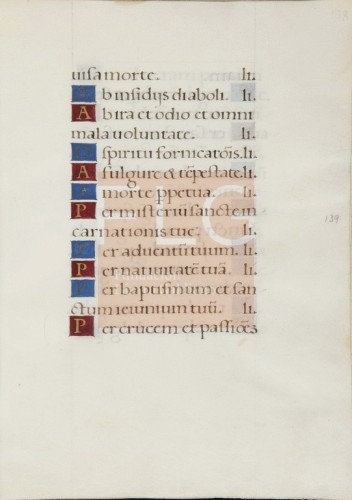 uisa morte. li.
Ab insidijs diaboli. li.
Ab ira et odio et omni
mala uoluntate. li.
A spiritu fornicatōis. li.
A fulgure & tēpestate. li.
A morte ppetua. li.
Per misteriū sancte in
carnationis tue. li.
Per aduentū tuum. li.
Per natiuitatē tuā. li.
Per baptismum et san
ctum ieiunium tuū. li.
Per crucem et passiōeʒ